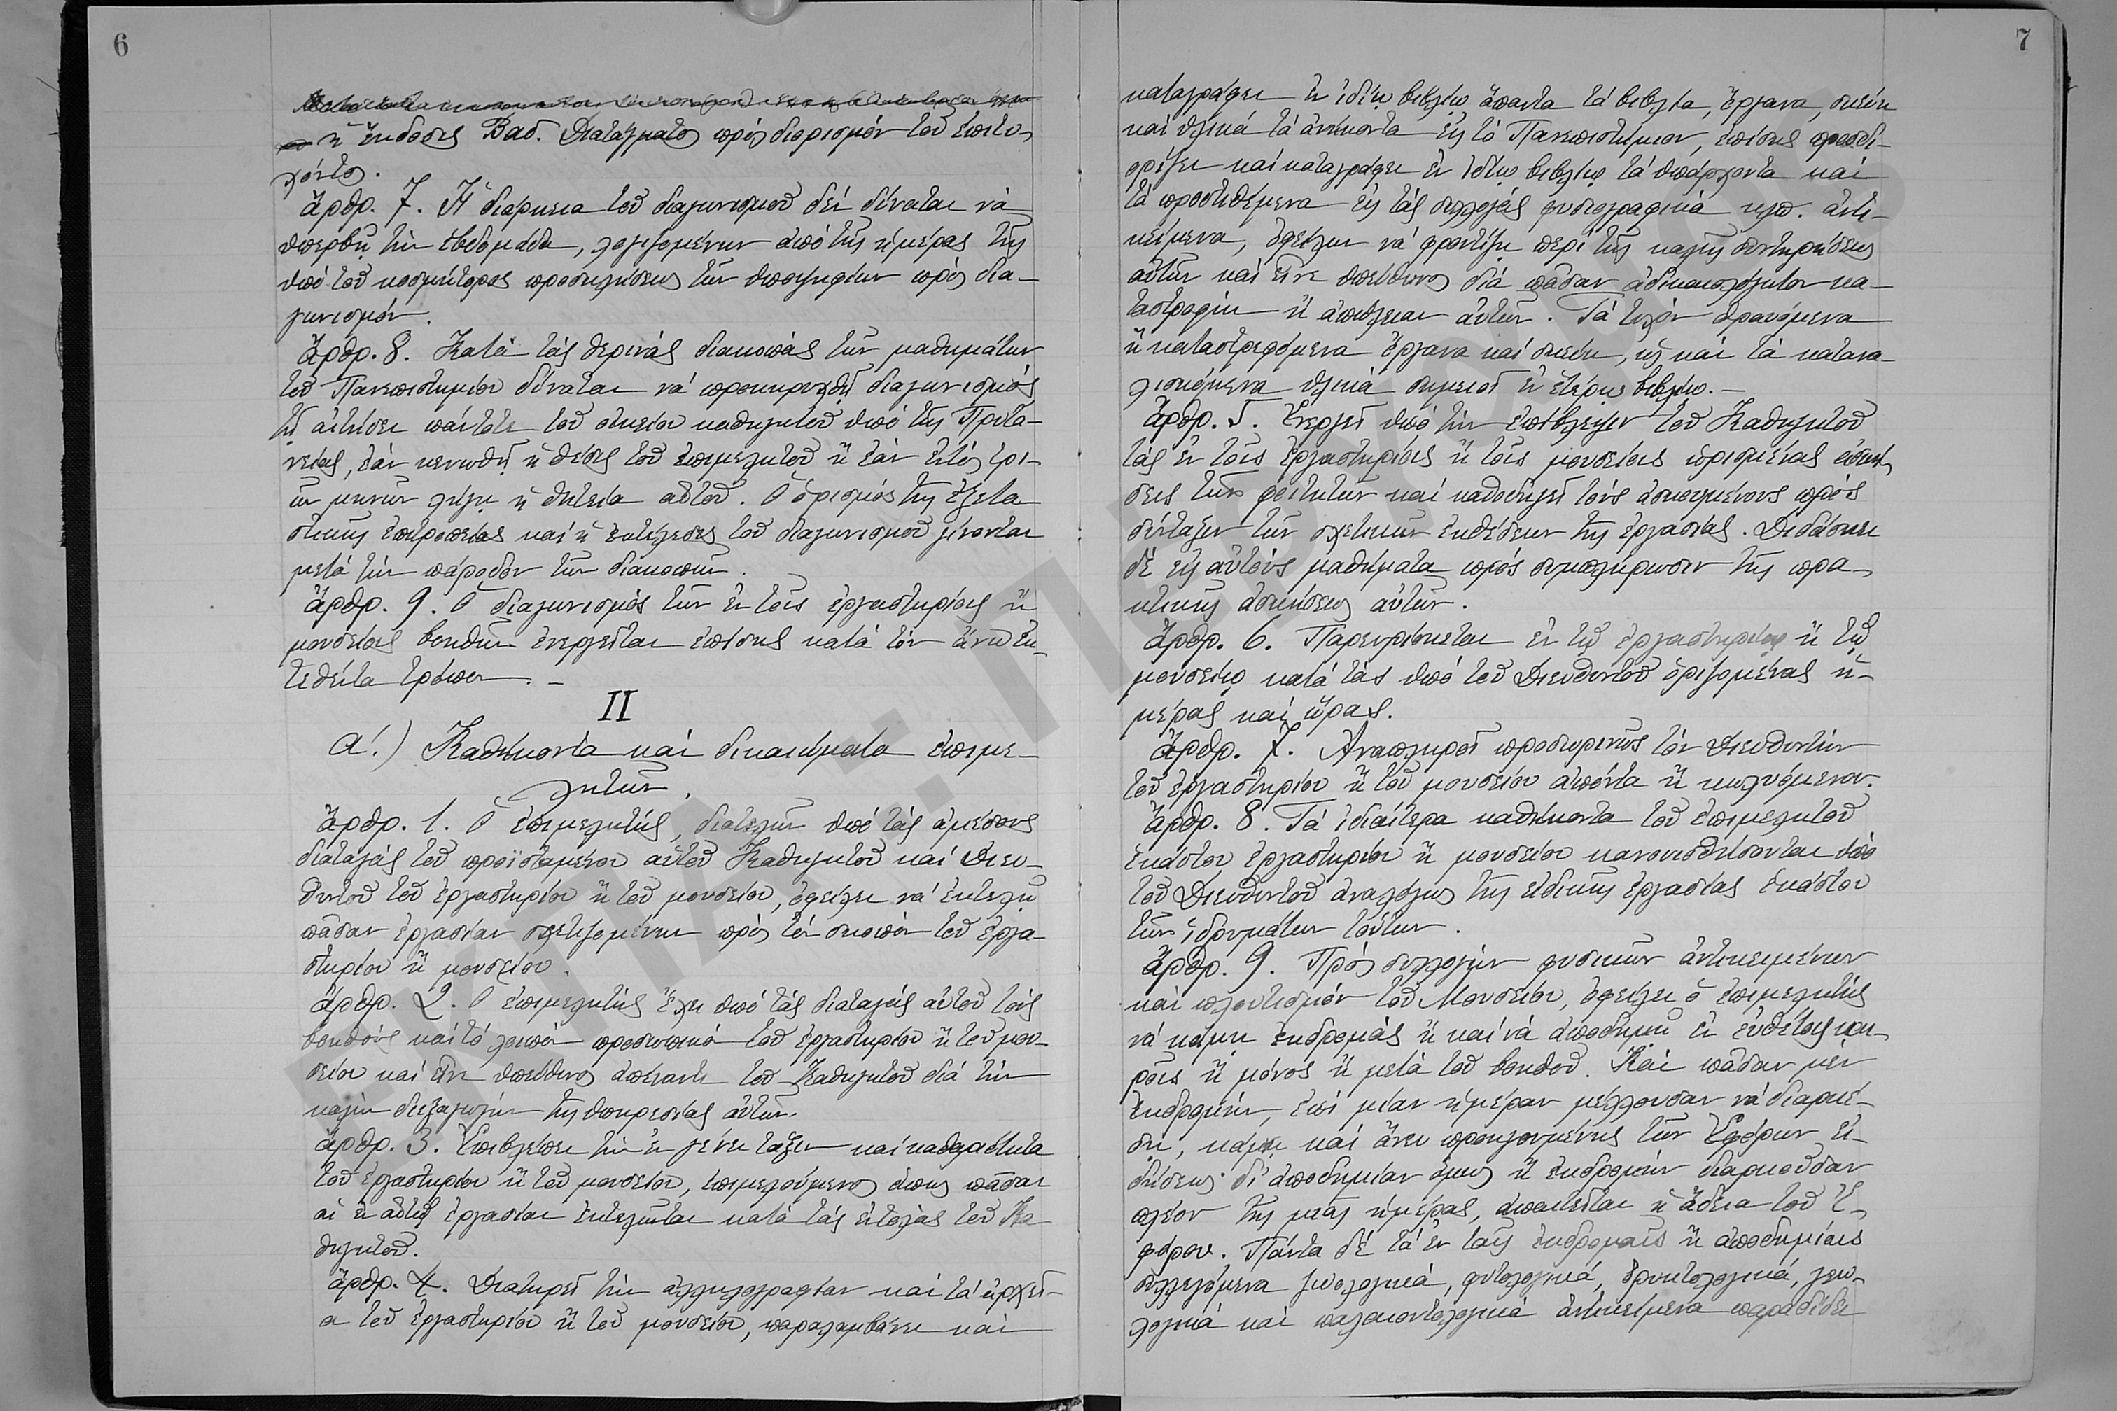 6
ἡ ἔκδοσις Βασ. Διατάγματος πρὸς διορισμὸν τοῦ ἐπιτυ-
χόντος.
Ἄρθρ. 7. Ἡ διάρκεια τοῦ διαγωνισμοῦ δὲν δύναται νὰ
ὑπερβῇ τὴν ἑβδομάδα, λογιζομένων ἀπὸ τῆς ἡμέρας τῆς
ὑπὸ τοῦ κοσμήτορος προσκλήσεως τῶν ὑποψηφίων πρὸς δια-
γωνισμόν.
Ἄρθρ. 8. Κατὰ τὰς θερινὰς διακοπὰς τῶν μαθημάτων
τοῦ Πανεπιστημίου δύναται νὰ προκηρυχθῇ διαγωνισμὸς
τῇ αἰτήσει πάντοτε τοῦ οἰκείου καθηγητοῦ ὑπὸ τῆς Πρυτα-
νείας, ἐὰν κενωθῇ ἡ θέσις τοῦ ἐπιμελητοῦ ἢ ἐὰν ἐντὸς τρι-
ῶν μηνῶν λήγῃ ἡ θητεία αὐτοῦ. Ὁ ὁρισμὸς τῆς ἐξετα-
στικῆς ἐπιτροπείας καὶ ἡ ἐκτέλεσις τοῦ διαγωνισμοῦ γίνονται
μετὰ τὴν πάροδον τῶν διακοπῶν.
Ἄρθρ. 9. Ὁ διαγωνισμὸς τῶν ἐν τοῖς ἐργαστηρίοις ἢ
μουσείοις βοηθῶν ἐνεργεῖται ἐπίσης κατὰ τὸν ἄνω ἐκ-
τεθέντα τρόπον. –
II
α΄.) Καθήκοντα καὶ δικαιώματα ἐπιμε-
λητῶν.
Ἄρθρ. 1. Ὁ ἐπιμελητής, διατελῶν ὑπὸ τὰς ἀμέσους
διαταγὰς τοῦ προϊσταμένου αὐτοῦ Καθηγητοῦ καὶ Διευ-
θυντοῦ τοῦ ἐργαστηρίου ἢ τοῦ μουσείου, ὀφείλει νὰ ἐκτελῇ
πᾶσαν ἐργασίαν σχετιζομένην πρὸς τὸν σκοπὸν τοῦ ἐργα-
στηρίου ἢ μουσείου.
Ἄρθρ. 2. Ὁ ἐπιμελητὴς ἔχει ὑπὸ τὰς διαταγὰς αὐτοῦ τοὺς
βοηθοὺς καὶ τὸ λοιπὸν προσωπικὸν τοῦ ἐργαστηρίου ἢ τοῦ μου-
σείου καὶ εἶνε ὑπεύθυνος ἀπέναντι τοῦ Καθηγητοῦ διὰ τὴν
καλὴν διεξαγωγὴν τῆς ὑπηρεσίας αὐτῶν.
Ἄρθρ. 3. Ἐπιβλέπει τὴν ἐν γένει τάξιν καὶ καθαριότητα
τοῦ ἐργαστηρίου ἢ τοῦ μουσείου, ἐπιμελούμενος ὅπως πᾶσαι
αἱ ἐν αὐτῷ ἐργασίαι ἐκτελῶνται κατὰ τὰς ἐντολὰς τοῦ Κα-
θηγητοῦ.
Ἄρθρ. 4. Διατηρεῖ τὴν ἀλληλογραφίαν καὶ τὰ ἀρχεῖ-
α τοῦ ἐργαστηρίου ἢ τοῦ μουσείου, παραλαμβάνει καὶ
7
καταγράφει ἐν ἰδίῳ βιβλίῳ ἅπαντα τὰ βιβλία, ὄργανα, σκεύη
καὶ ὑλικὰ τὰ ἀνήκοντα εἰς τὸ Πανεπιστήμιον, ἐπίσης προσδι-
ορίζει καὶ καταγράφει ἐν ἰδίῳ βιβλίῳ τὰ ὑπάρχοντα καὶ
τὰ προστιθέμενα εἰς τὰς συλλογὰς φυσιογραφικὰ κλπ. ἀντι-
κείμενα, ὀφείλων νὰ φροντίζῃ περὶ τῆς καλῆς συντηρήσεως
αὐτῶν καὶ εἶνε ὑπεύθυνος διὰ πᾶσαν ἀδικαιολόγητον κα-
ταστροφὴν ἢ ἀπώλειαν αὐτῶν. Τὰ τυχὸν θραυόμενα
ἢ καταστρεφόμενα ὄργανα καὶ σκεύη, ὡς καὶ τὰ κατανα-
λισκόμενα ὑλικὰ σημειοῖ ἐν ἑτέρῳ βιβλίῳ. –
Ἄρθρ. 5. Ἐνεργεῖ ὑπὸ τὴν ἐπίβλεψιν τοῦ Καθηγητοῦ
τὰς ἐν τοῖς ἐργαστηρίοις ἢ τοῖς μουσείοις ὡρισμένας ἀσκή-
σεις τῶν φοιτητῶν καὶ καθοδηγεῖ τοὺς ἀσκουμένους πρὸς
σύνταξιν τῶν σχετικῶν ἐκθέσεων τῆς ἐργασίας. Διδάσκει
δὲ εἰς αὐτοὺς μαθήματα πρὸς συμπλήρωσιν τῆς πρα-
κτικῆς ἀσκήσεως αὐτῶν.
Ἄρθρ. 6. Παρευρίσκεται ἐν τῷ ἐργαστηρίῳ ἢ τῷ
μουσείῳ κατὰ τὰς ὑπὸ τοῦ Διευθυντοῦ ὁριζομένας ἡ-
μέρας καὶ ὥρας.
Ἄρθρ. 7. Ἀναπληροῖ προσωρινῶς τὸν Διευθυντὴν
τοῦ ἐργαστηρίου ἢ τοῦ μουσείου ἀπόντα ἢ κωλυόμενον.
Ἄρθρ. 8. Τὰ ἰδιαίτερα καθήκοντα τοῦ ἐπιμελητοῦ
ἑκάστου ἐργαστηρίου ἢ μουσείου κανονισθήσονται ὑπὸ
τοῦ Διευθυντοῦ ἀναλόγως τῆς εἰδικῆς ἐργασίας ἑκάστου
τῶν ἱδρυμάτων τούτων.
Ἄρθρ. 9. Πρὸς συλλογὴν φυσικῶν ἀντικειμένων
καὶ πλουτισμὸν τοῦ Μουσείου, ὀφείλει ὁ ἐπιμελητὴς
νὰ κάμῃ ἐκδρομὰς ἢ καὶ νὰ ἀποδημῇ ἐν εὐθέτοις και-
ροῖς ἢ μόνος ἢ μετὰ τοῦ βοηθοῦ. Καὶ πᾶσαν μὲν
ἐκδρομήν, ἐπὶ μίαν ἡμέραν μέλλουσαν νὰ διαρκέ-
σῃ, κάμνει καὶ ἄνευ προηγουμένης τῶν Ἐφόρων εἰ-
δήσεως· δι' ἀποδημίαν ὅμως ἢ ἐκδρομὴν διαρκοῦσαν
πλέον τῆς μιᾶς ἡμέρας, ἀπαιτεῖται ἡ ἄδεια τοῦ Ἐ-
φόρου. Πάντα δὲ τὰ ἐν ταῖς ἐκδρομαῖς ἢ ἀποδημίαις
συλλεγόμενα ζωολογικά, φυτολογικά, ὀρυκτολογικά, γεω-
λογικὰ καὶ παλαιοντολογικὰ ἀντικείμενα παραδίδει